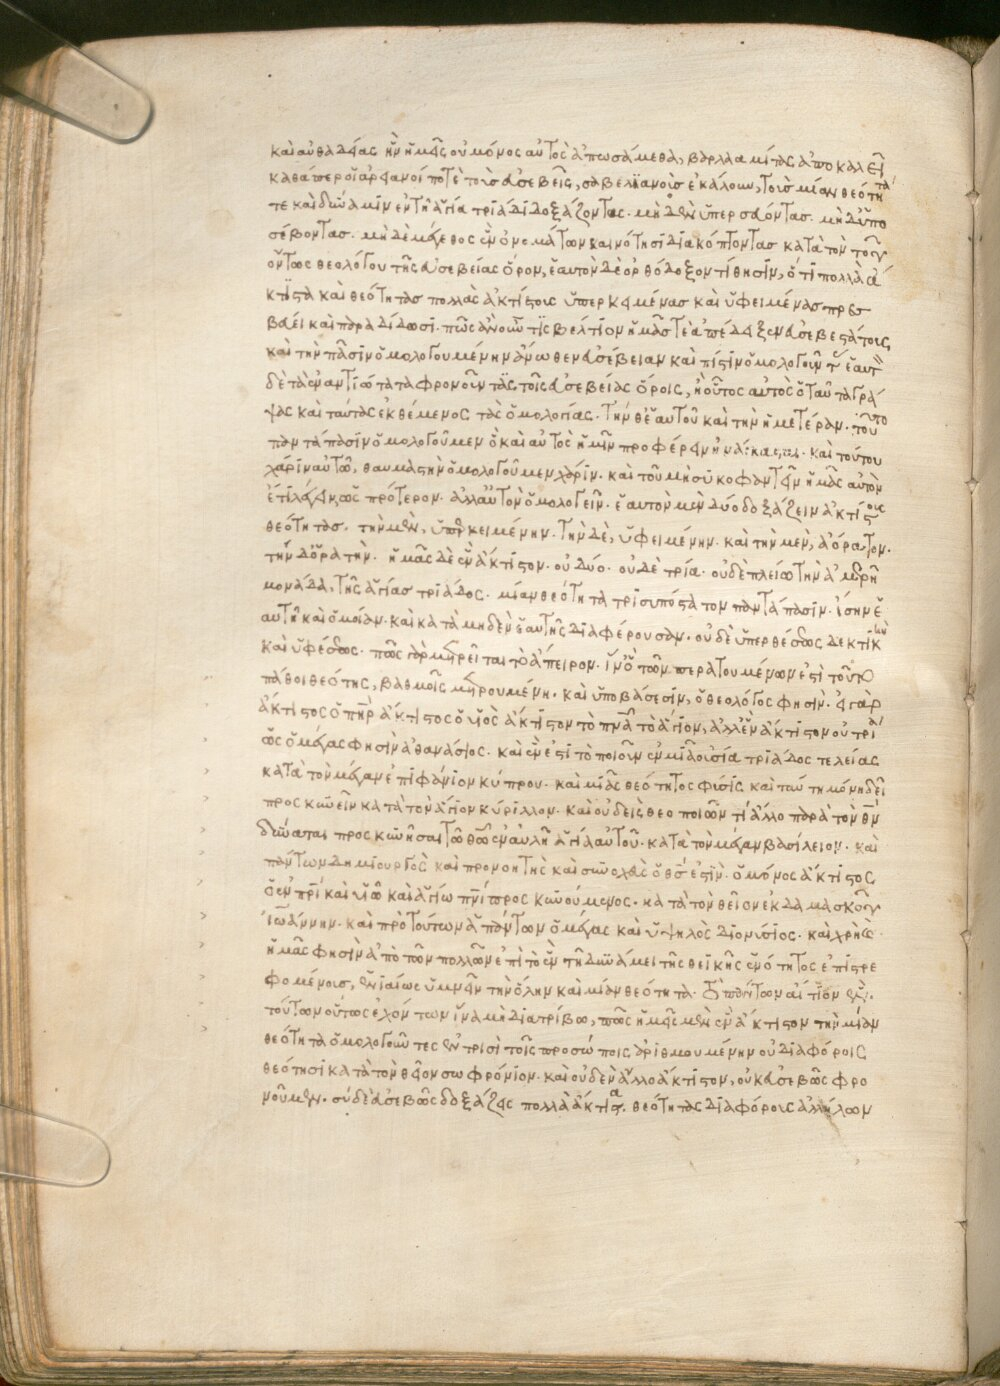 καὶ αὐθαδείας ἢν ἡμεῖς οὐ μόνος αὐτὸς ἀπωσάμεθα, βαρλααμίτας ἀποκαλεῖ
καθάπερ οἱ ἀρειανοί ποτὲ τοὺς ἀσεβεῖς, σαβελιανοὺς ἐκάλουν, τοὺς μίαν θεότητα
τε καὶ δύναμιν ἐν τῇ ἁγία τριάδι δοξάζοντας. μὴ δὲν ὑπερσαόντας. μὴ δ' ὑπο
σέβοντας. μὴ δὲ μάγεθος ἐν ὀνομάτων καινότησι διακόπτοντας κατὰ τὸν τοῦ
ὄντως θεολόγου τῆς ἀσεβείας ὅρον, ἑαυτὸν δὲ ὀρθόδοξον τίθησιν, ὅτι πολλὰ ἄ
κτιστα καὶ θεότητας πολλὰς ἀκτίστους ὑπερκειμένας καὶ ὑφειμένας πρεσ
βεύει καὶ παραδίδωσι. πῶς ἂν οὖν τίς βέλτιον ἡμᾶς τε ἀπέδειξεν ἀσεβεστάτους
καὶ τὴν πᾶσιν ὁμολογουμένην ἄνωθεν ἀσέβειαν καὶ πίστιν ὁμολογοῦν
δὲ τὰ ἐναντιώτατα φρονοῦντας τοῖς ἀσεβείας ὅροις, ἢ οὗτος αὐτὸς ὁ ταῦτα γρά
ψας καὶ ταύτας ἐκθέμενος τὰς ὁμολογίας. τήν θ' ἑαυτοῦ καὶ τὴν ἡμετέραν. τοῦτο
παντάπασιν ὁμολογοῦμεν ὃ καὶ αὐτὸς ἡμῖν προφέρειν ἠνάγκασται. καὶ τούτου
χάριν αὐτῶ, θαυμαστὴν ὁμολογοῦμεν χάριν. καὶ τοῦ μὴ συκοφαντεῖν ἡμᾶς αὐτὸν
ἔτι λέγειν ὡς πρότερον. ἀλλ' αὐτὸν ὁμολογεῖν. ἑαυτὸν μὲν δύο δοξάζειν ἀκτίστους
θεότητας. τὴν μὲν, ὑπερκειμένην. τὴν δὲ, ὑφειμένην. καὶ τὴν μὲν, ἀόρατον.
τὴν δ' ὁρατήν. ἡμᾶς δὲ ἓν ἄκτιστον. οὐ δύο. οὐδὲ τρία. οὐδὲ πλείω τὴν ἀμερῆ
μονάδα, τῆς ἁγίας τριάδος. μίαν θεότητα τρισυπόστατον παντάπασιν. ἴσην ἑ
αυτῇ καὶ ὁμοίαν. καὶ κατὰ μηδὲν ἑαυτῆς διαφέρουσαν. οὐδὲ ὑπερθέσεως δεκτικὴν
καὶ ὑφέσεως. πῶς γὰρ μετρεῖται τὸ ἄπειρον. ἵν' ὃ τῶν περατουμένων ἐστὶ τοῦτο
πάθοι θεότης, βαθμοῖς μετρουμένη. καὶ ὑποβάσεσιν, ὁ θεολόγος φησὶν. εἰ γὰρ
ἄκτιστος ὁ πὴρ ἄκτιστος ὁ υἱὸς ἄκτιστον τὸ πνα τὸ ἅγιον, ἀλλ' ἓν ἄκτιστον οὐ τρία
ὡς ὁ μέγας φησὶν ἀθανάσιος. καὶ ἕν ἐστι τὸ ποιοῦν ἐν μιᾶ οὐσία τριάδος τελείας
κατὰ τὸν μέγαν ἐπιφάνιον κύπρου. καὶ μιᾶς θεότητος φύσις καὶ ταύτη μόνη δεῖ
προσκυνεῖν κατὰ τὸν ἅγιον κύριλλον. καὶ οὐδεὶς θεοποιῶν τί ἄλλο παρὰ τὸν θν
δύναται προσκυνῆσαι τῶ θῶ ἐν αὐλῆ ἁγία αὐτοῦ. κατὰ τὸν μέγαν βασίλειον. καὶ
πάντων δημιουργὸς καὶ προνοητὴς καὶ συνοχεὺς ὁ θς ἐστὶν. ὁ μόνος ἄκτιστος
ὁ ἐν πρὶ καὶ υἱῶ καὶ ἁγίω πνι προσκυνούμενος. κατὰ τὸν θεῖον ἐκ δαμασκοῦ
ἰωάννην. καὶ πρὸ τούτων ἁπάντων ὁ μέγας καὶ ὑψηλὸς διονύσιος. καὶ χρὴ
ἡμᾶς φησὶν ἀπὸ τῶν πολλῶν ἐπὶ τὸ ἓν τῇ δυνάμει τῆς θεϊκῆς ἑνότητος ἐπιστρε
φομένους, ἑνιαίως ὑμνεῖν τὴν ὅλην καὶ μίαν θεότητα. τὸ πάντων αἴτιον ἕν.
τούτων οὕτως ἐχόντων ἵνα μὴ διατρίβω, πῶς ἡμεῖς μὲν ἓν ἄκτιστον τὴν μίαν
θεότητα ὁμολογοῦντες ἐν τρισὶ τοῖς προσώποις ἀριθμουμένην οὐ διαφόροις
θεότησι κατὰ τὸν θεῖον σωφρόνιον. καὶ οὐδὲν ἄλλο ἄκτιστον, οὐκ ἀσεβῶς φρο
νοῦμεν. σύ δὲ ἀσεβῶς δοξάζεις πολλὰ ἄκτιστα. θεότητας διαφόρους ἀλλήλων